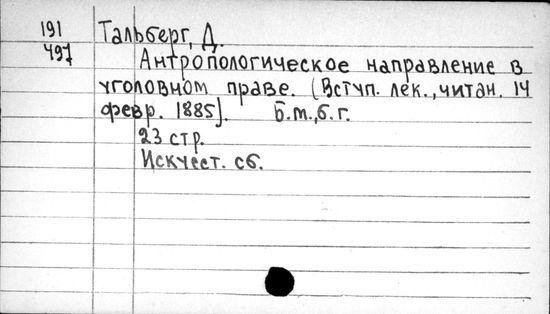 191 Тальберг, Д.
497 Антропологическое направление в
уголовном праве. (Вступ. лек., читан. 14
февр. 1885). Б.м., б.г.
23 стр.